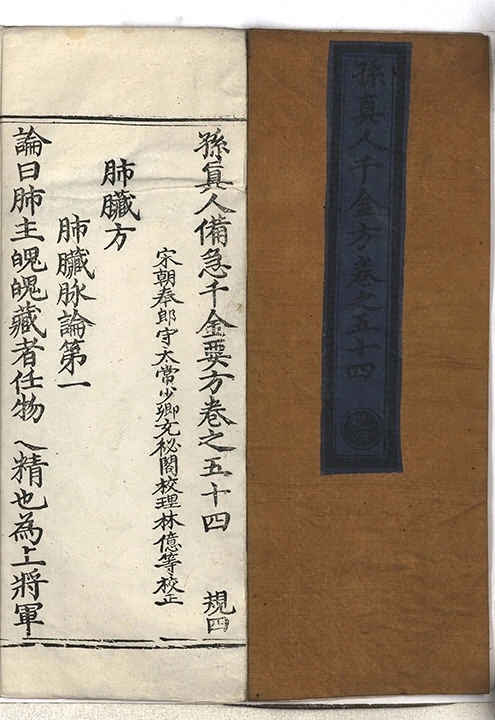 孫真人千金方卷之五十四
孫真人備急千金要方卷之五十四 規四
宋朝奉郎守太常少卿充秘閣校理林億等校正
肺臟方
肺臟脉論第一
論曰肺主魄魄藏者任物之精也為上將軍